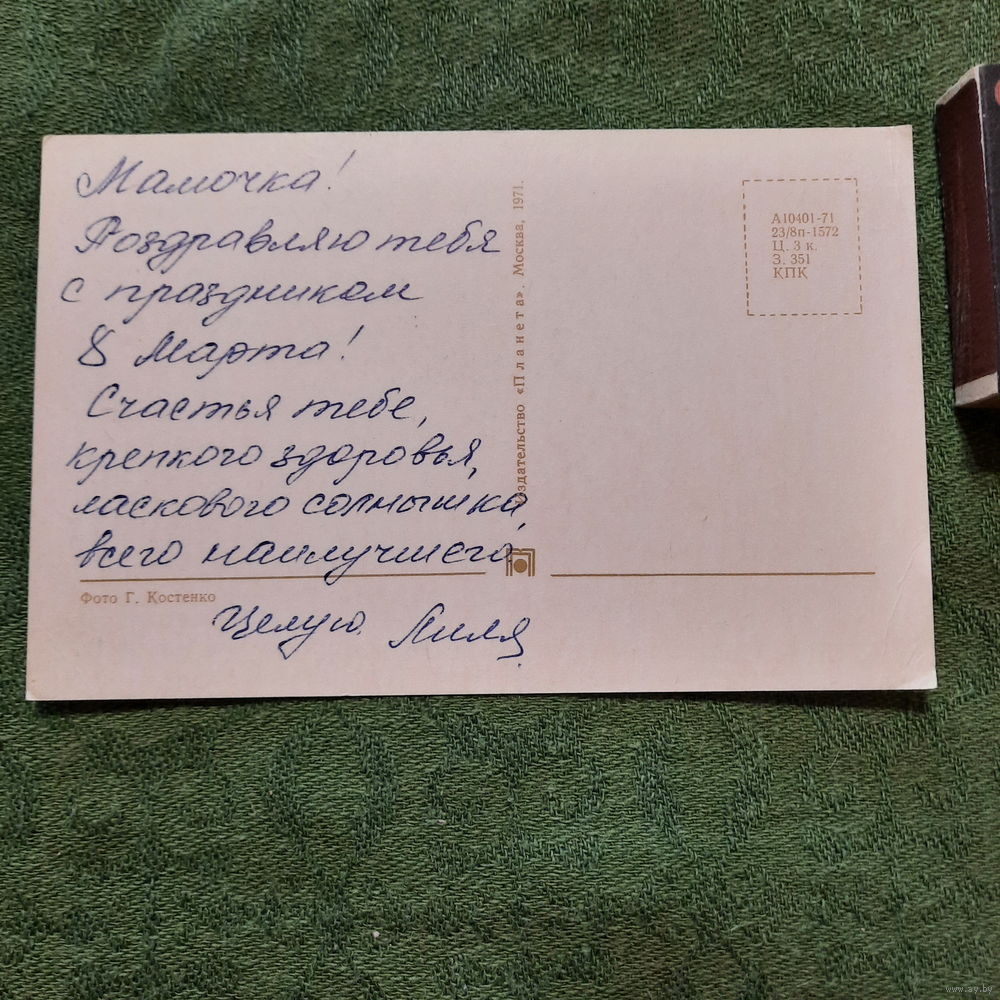 Мамочка!
Поздравляю тебя
с праздником
8 Марта!
Счастья тебе,
крепкого здоровья,
ласкового солнышка,
всего наилучшего.
Целую. Лиля.
Фото Г. Костенко
Издательство «Планета». Москва, 1971.
А10401-71
23/8п-1572
Ц. 3 к.
З. 351
КПК
www.ay.by